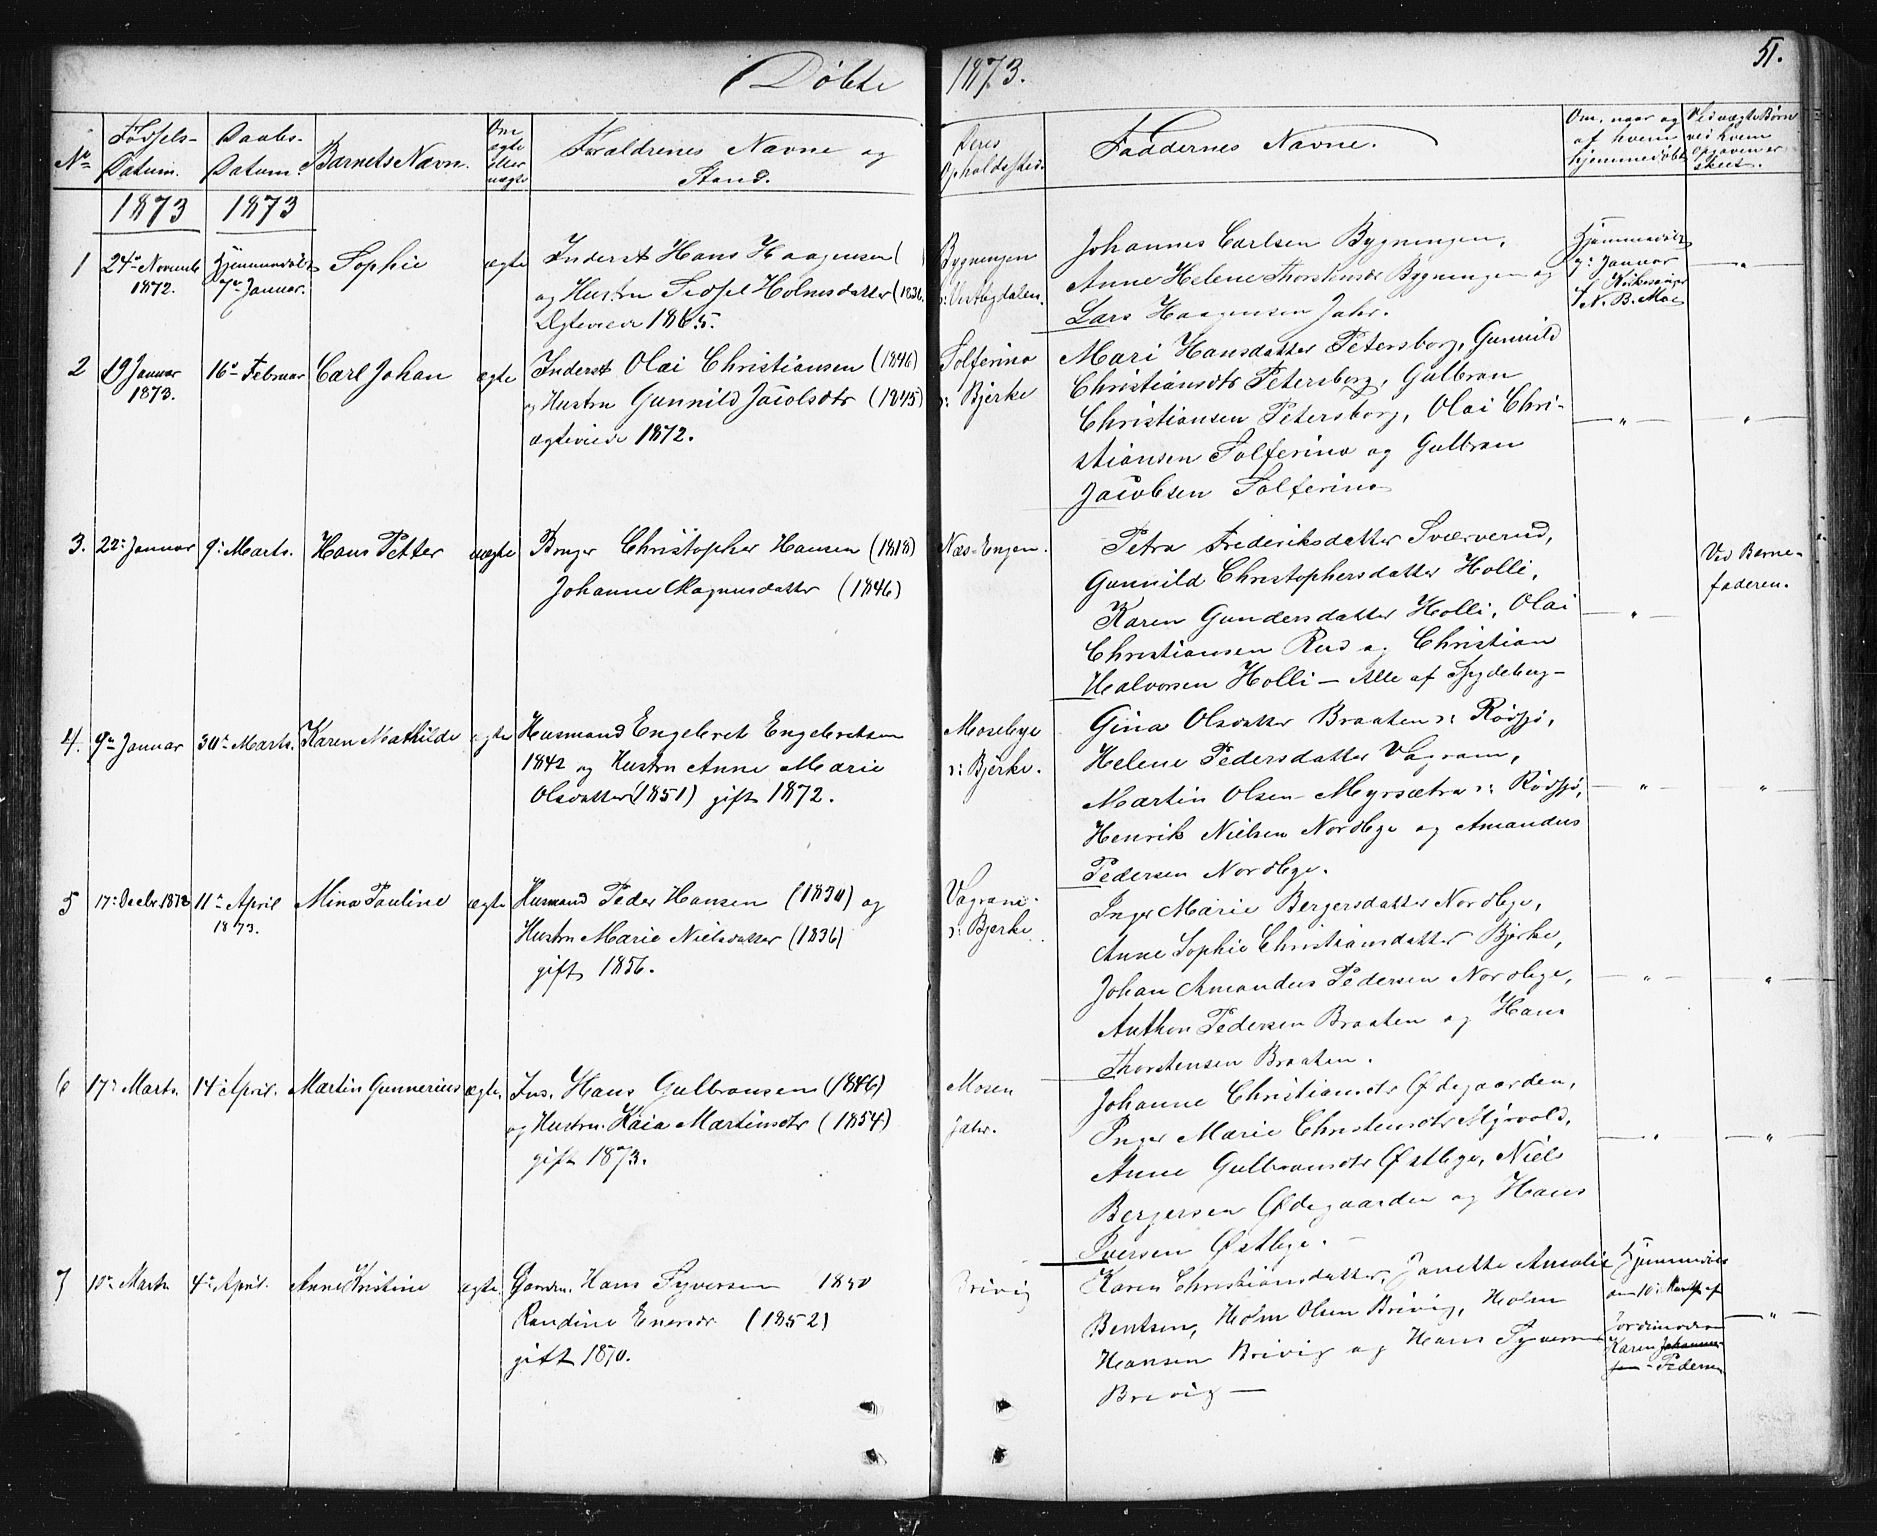 Døbte 1873. 51.
No
Fødsels-Datum.
Daabs-Datum.
Barnets Navn.
Om ægte eller uægte
Forældrenes Navne og Stand.
Deres Opholdssted.
Faddernes Navne.
Om, naar og af hvem hjemmedøbt
Ved uægte Børn ved hvem Opgaven er skeet.
1873 1873
1 24de Novemb 1872. Hjemmedøbt 7de Januar. Sophie ægte
Inderst Hans Haagensen (
og Hustru Sidsel Holmsdatter (1836
Ægteviede 1865.
Bygningen
Johannes Carlsen Bygningen,
Anne Helene Thorstensdr Bygningen og
Lars Haagensen Jahr.
Hjemmedøbt
7de Januar
N. B. Moe
2 19 Januar 1873. 16de Februar Carl Johan ægte
Inderst Olai Christiansen (1846)
og Hustru Gunnild Jacobsdtr (1845)
ægteviede 1872.
Solferino
r: Bjerke
Mari Hansdatter Petersborg, Gunnild
Christiansdtr Petersborg, Gulbran
Christiansen Petersborg, Olai Chri-
stiansen Solferino og Gulbran
Jacobsen Solferino
3. 22: Januar 9: Marts. Hans Petter uægte
Bruger Christopher Hansen (1818)
Johanne Magnusdatter (1846)
Næs-Engen.
Petra Frederiksdatter Sværverud,
Gunnild Christophersdatter Holli,
Karen Gundersdatter Holli, Olai
Christiansen Rud og Christian
Halvorsen Holli — Alle af Spydeberg —
Ved Barne-
faderen.
4. 9de Januar 30te Marts. Karen Mathilde ægte
Husmand Engebret Engebretsen
1842 og Hustru Anne Marie
Olsdatter (1851) gift 1872.
Mosebye
r: Bjerke.
Gina Olsdatter Braaten r: Rødsjø,
Helene Pedersdatter Vagram,
Martin Olsen Myrsætra r: Rødsjø,
Henrik Nielsen Nordbye og Amandus
Pedersen Nordbye.
5 17: Decbr 1872 11te April 1873. Mina Pauline ægte
Husmand Peder Hansen (1830) og
Hustru Marie Nielsdatter (1836)
gift 1856.
Vagram
r: Bjerke
Inger Marie Bergersdatter Nordbye,
Anne Sophie Christiansdatter Bjerke,
Johan Amandus Pedersen Nordbye,
Anthon Pedersen Braaten og Hans
Thorstensen Braaten.
6 17: Marts. 14: April. Martin Gunnerius ægte.
Ins. Hans Gulbransen (1846)
og Hustru Kaia Martinsdtr (1854)
gift 1873.
Mosen
Jahr.
Johanne Christiansdtr Ødegaarden,
Inger Marie Christensdtr Myrvold,
Anne Gulbransdtr Østbye, Niels
Bergersen Ødegaarden og Hans
Iversen Østbye. —
7 10de Marts 4de April. Anne Kristine ægte
Gaardm. Hans Syversen 1850
Randine Enersdr (1852)
gift 1870.
Brivig
Karen Christiansdatter, Janette Amalie
Bentsen, Holm Olsen Brivig, Holm
Hansen Brivig og Hans Syversen
Brevig —
Hjemmedøbt
den 10: Marts af
Jordemoderen
Karen Johannes-
sen - Pedersen